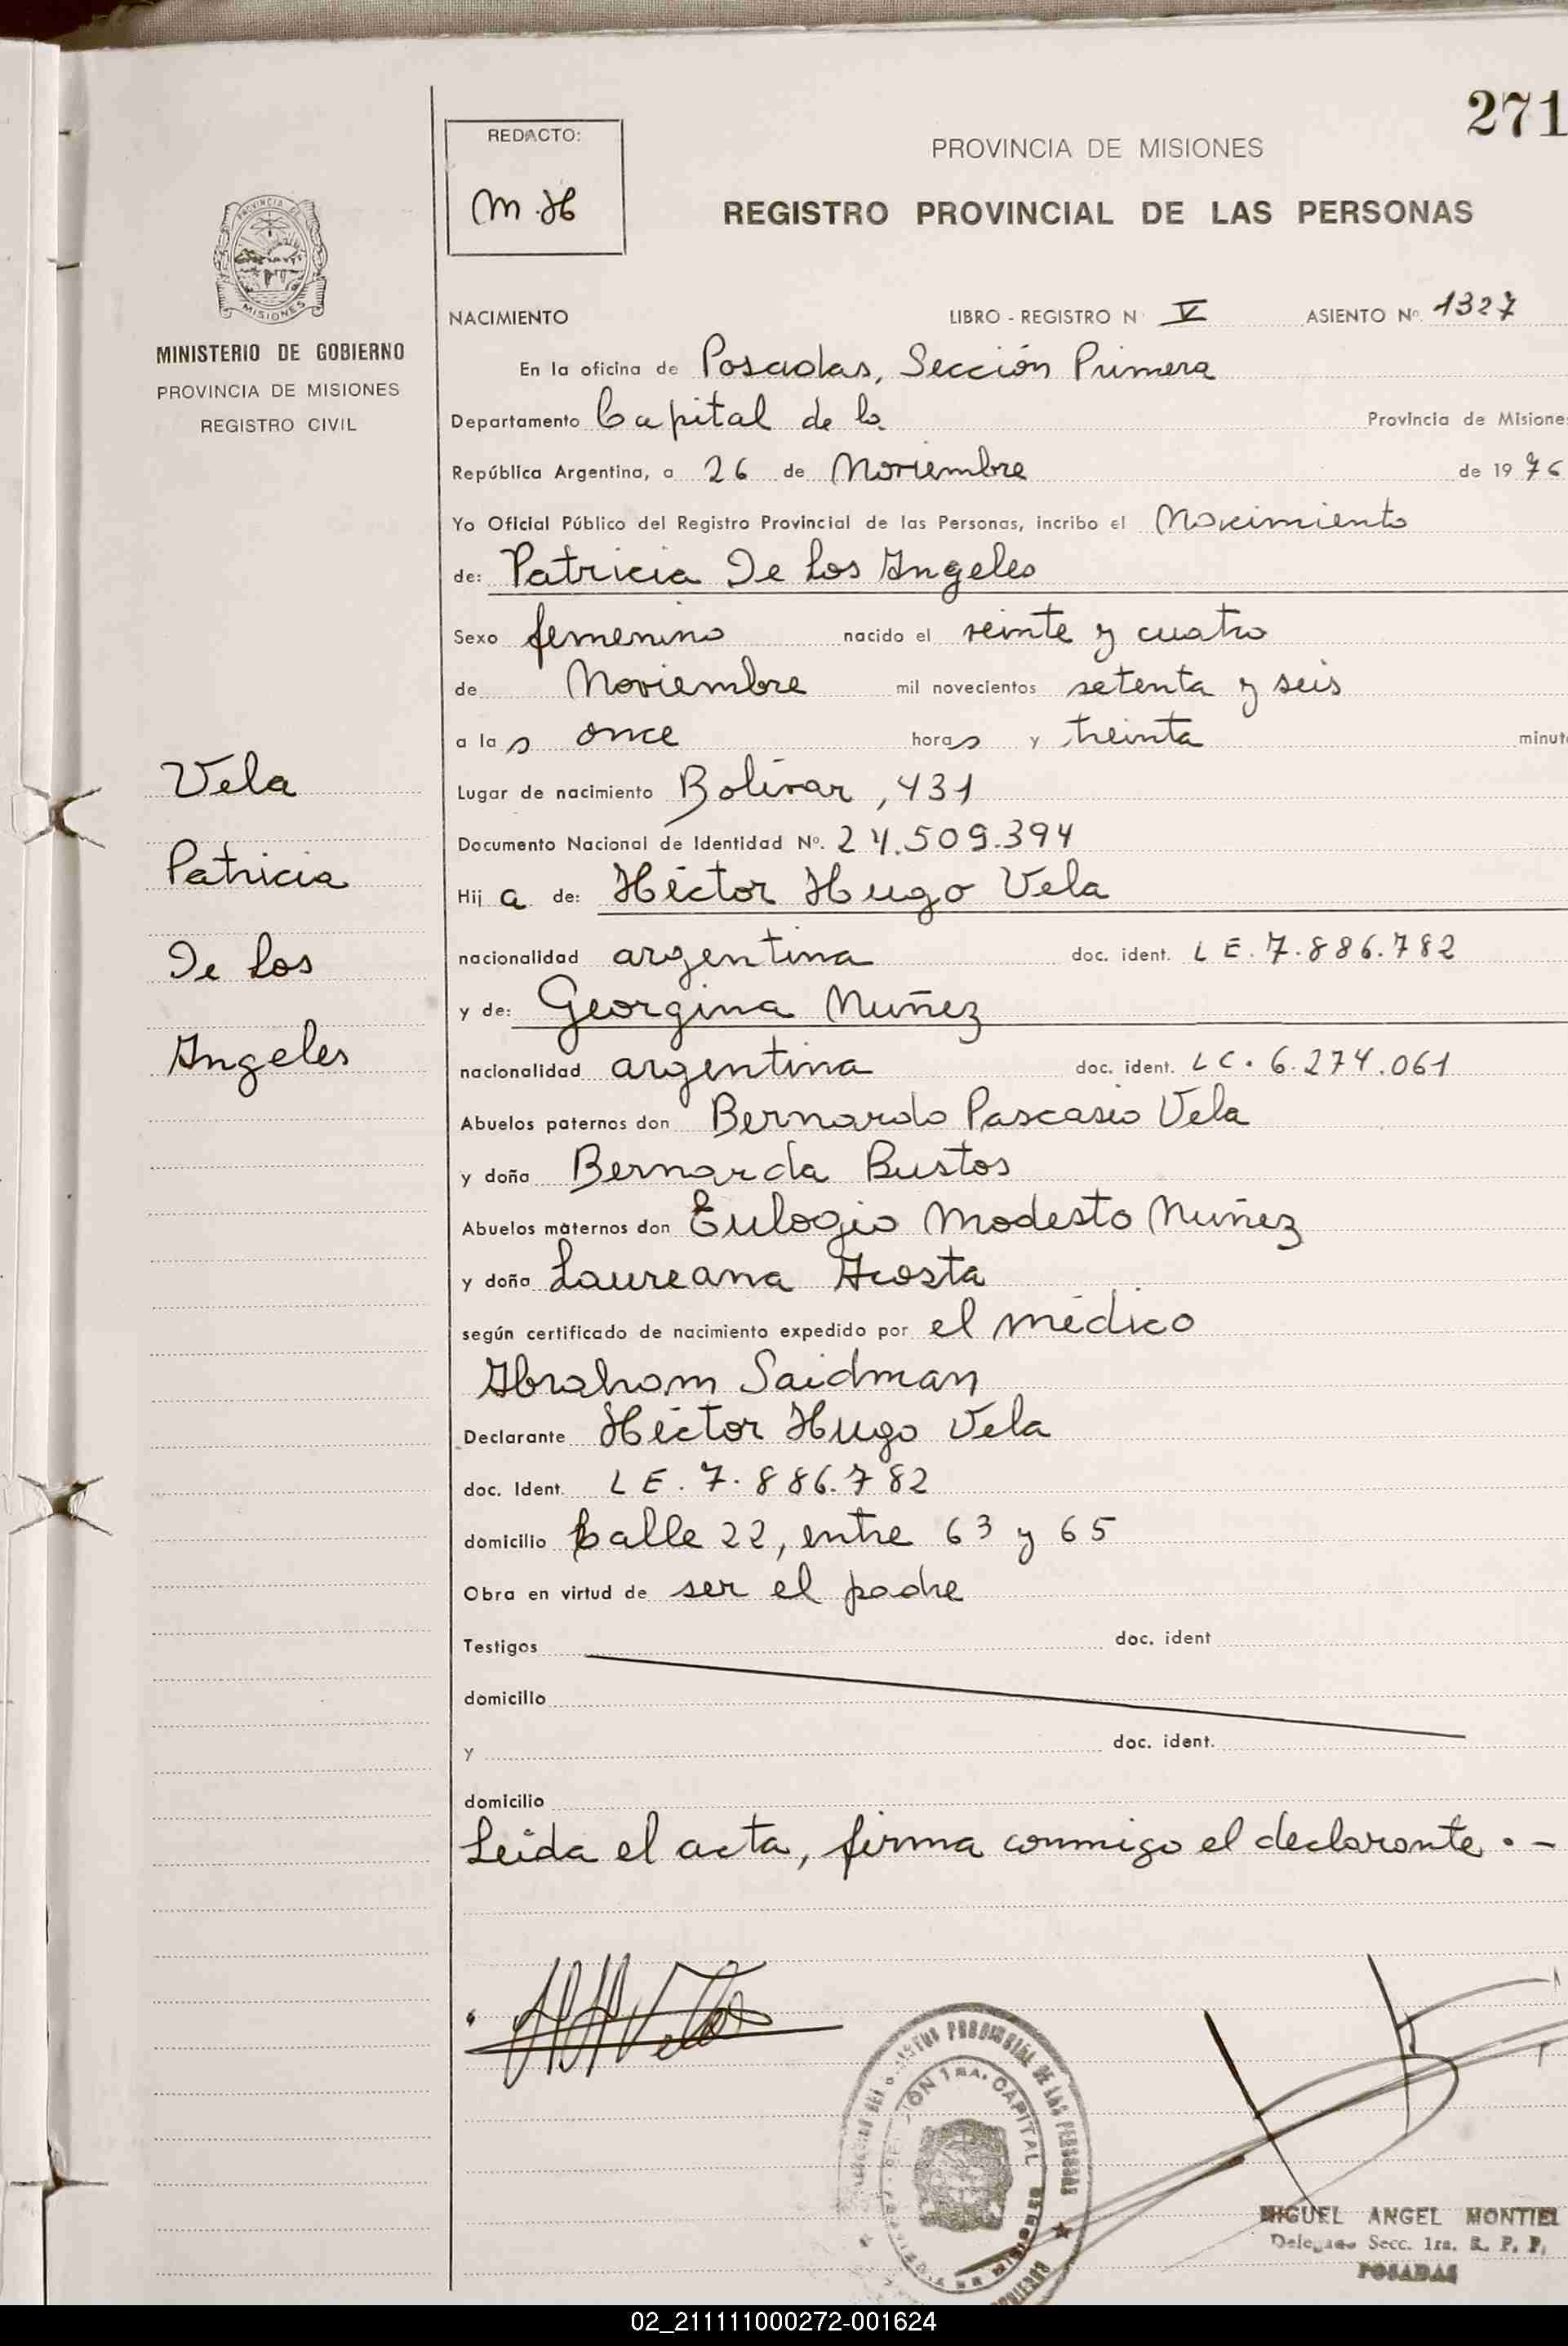 271
REDACTO:
M.H
PROVINCIA DE MISIONES
REGISTRO PROVINCIAL DE LAS PERSONAS
PROVINCIA DE
MISIONES
MINISTERIO DE GOBIERNO
PROVINCIA DE MISIONES
REGISTRO CIVIL
NACIMIENTO LIBRO - REGISTRO N V ASIENTO Nº. 1327
En la oficina de Posadas, Sección Primera
Departamento Capital de la Provincia de Misione
República Argentina, a 26 de Noviembre de 19 76
Yo Oficial Público del Registro Provincial de las Personas, incribo el Nacimiento
de: Patricia De Los Angeles
Sexo femenino nacido el veinte y cuatro
de Noviembre mil novecientos setenta y seis
a las once horas y treinta minut
Lugar de nacimiento Bolívar, 431
Documento Nacional de Identidad Nº. 24.509.394
Hij a de: Héctor Hugo Vela
nacionalidad argentina doc. ident. LE. 7.886.782
y de: Georgina Nuñez
nacionalidad argentina doc. ident. LC. 6.274.061
Abuelos paternos don Bernardo Pascasio Vela
y doña Bernarda Bustos
Abuelos maternos don Eulogio Modesto Nuñez
y doña Laureana Acosta
según certificado de nacimiento expedido por el médico
Abraham Saidman
Declarante Héctor Hugo Vela
doc. Ident. LE. 7.886.782
domicilio Calle 22, entre 63 y 65
Obra en virtud de ser el padre
Testigos doc. ident
domicilio
y doc. ident.
domicilio
Leida el acta, firma conmigo el declarante.-
Vela
Patricia
De Los
Angeles
HHVela
PROVINCIAL DE LAS PERSONAS
1ra. CAPITAL
MIGUEL ANGEL MONTIEL
Delegado Secc. 1ra. R. P. P.
POSADAS
02_211111000272-001624